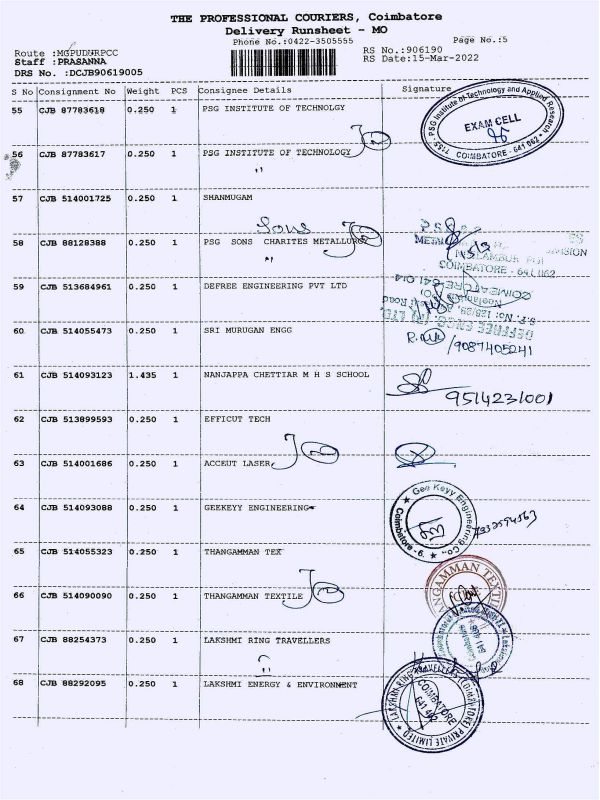 THE PROFESSIONAL COURIERS, Coimbatore
Delivery Runsheet - MO
Phone No.:0422-3505555 Page No.:5
Route :MGPUDURPCC RS No.:906190
Staff :PRASANNA RS Date:15-Mar-2022
DRS No. :DCJB90619005
S No Consignment No Weight PCS Consignee Details Signature
55 CJB 87783618 0.250 1 PSG INSTITUTE OF TECHNOLGY
PSG Institute of Technology and Applied Research
EXAM CELL
COIMBATORE - 641 062
56 CJB 87783617 0.250 1 PSG INSTITUTE OF TECHNOLOGY
"
57 CJB 514001725 0.250 1 SHANMUGAM
Sons
58 CJB 88128388 0.250 1 PSG SONS CHARITES METALLURGY
"
COIMBATORE - 641 062
59 CJB 513684961 0.250 1 DEFREE ENGINEERING PVT LTD
COIMBATORE-641 014
60 CJB 514055473 0.250 1 SRI MURUGAN ENGG
/9087405241
61 CJB 514093123 1.435 1 NANJAPPA CHETTIAR M H S SCHOOL
9514231001
62 CJB 513899593 0.250 1 EFFICUT TECH
63 CJB 514001686 0.250 1 ACCEUT LASER
64 CJB 514093088 0.250 1 GEEKEYY ENGINEERING
Gee Keyy Engineering Co.,
Coimbatore - 6.
65 CJB 514055323 0.250 1 THANGAMMAN TEX
66 CJB 514090090 0.250 1 THANGAMMAN TEXTILE
67 CJB 88254373 0.250 1 LAKSHMI RING TRAVELLERS
"
68 CJB 88292095 0.250 1 LAKSHMI ENERGY & ENVIRONMENT
LAKSHMI RING TRAVELLERS (COIMBATORE) PRIVATE LIMITED
COIMBATORE
641 402